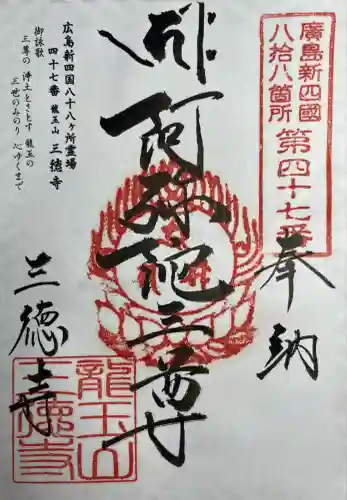 廣島新四國
八拾八箇所
第四十七番
奉納
阿弥陀三尊
三徳寺
龍玉山
三徳寺
広島新四国八十八ヶ所霊場
四十七番 龍王山 三徳寺
御詠歌
三尊の 浄土とさとす 龍王の
三世のみのり 心ゆくまで